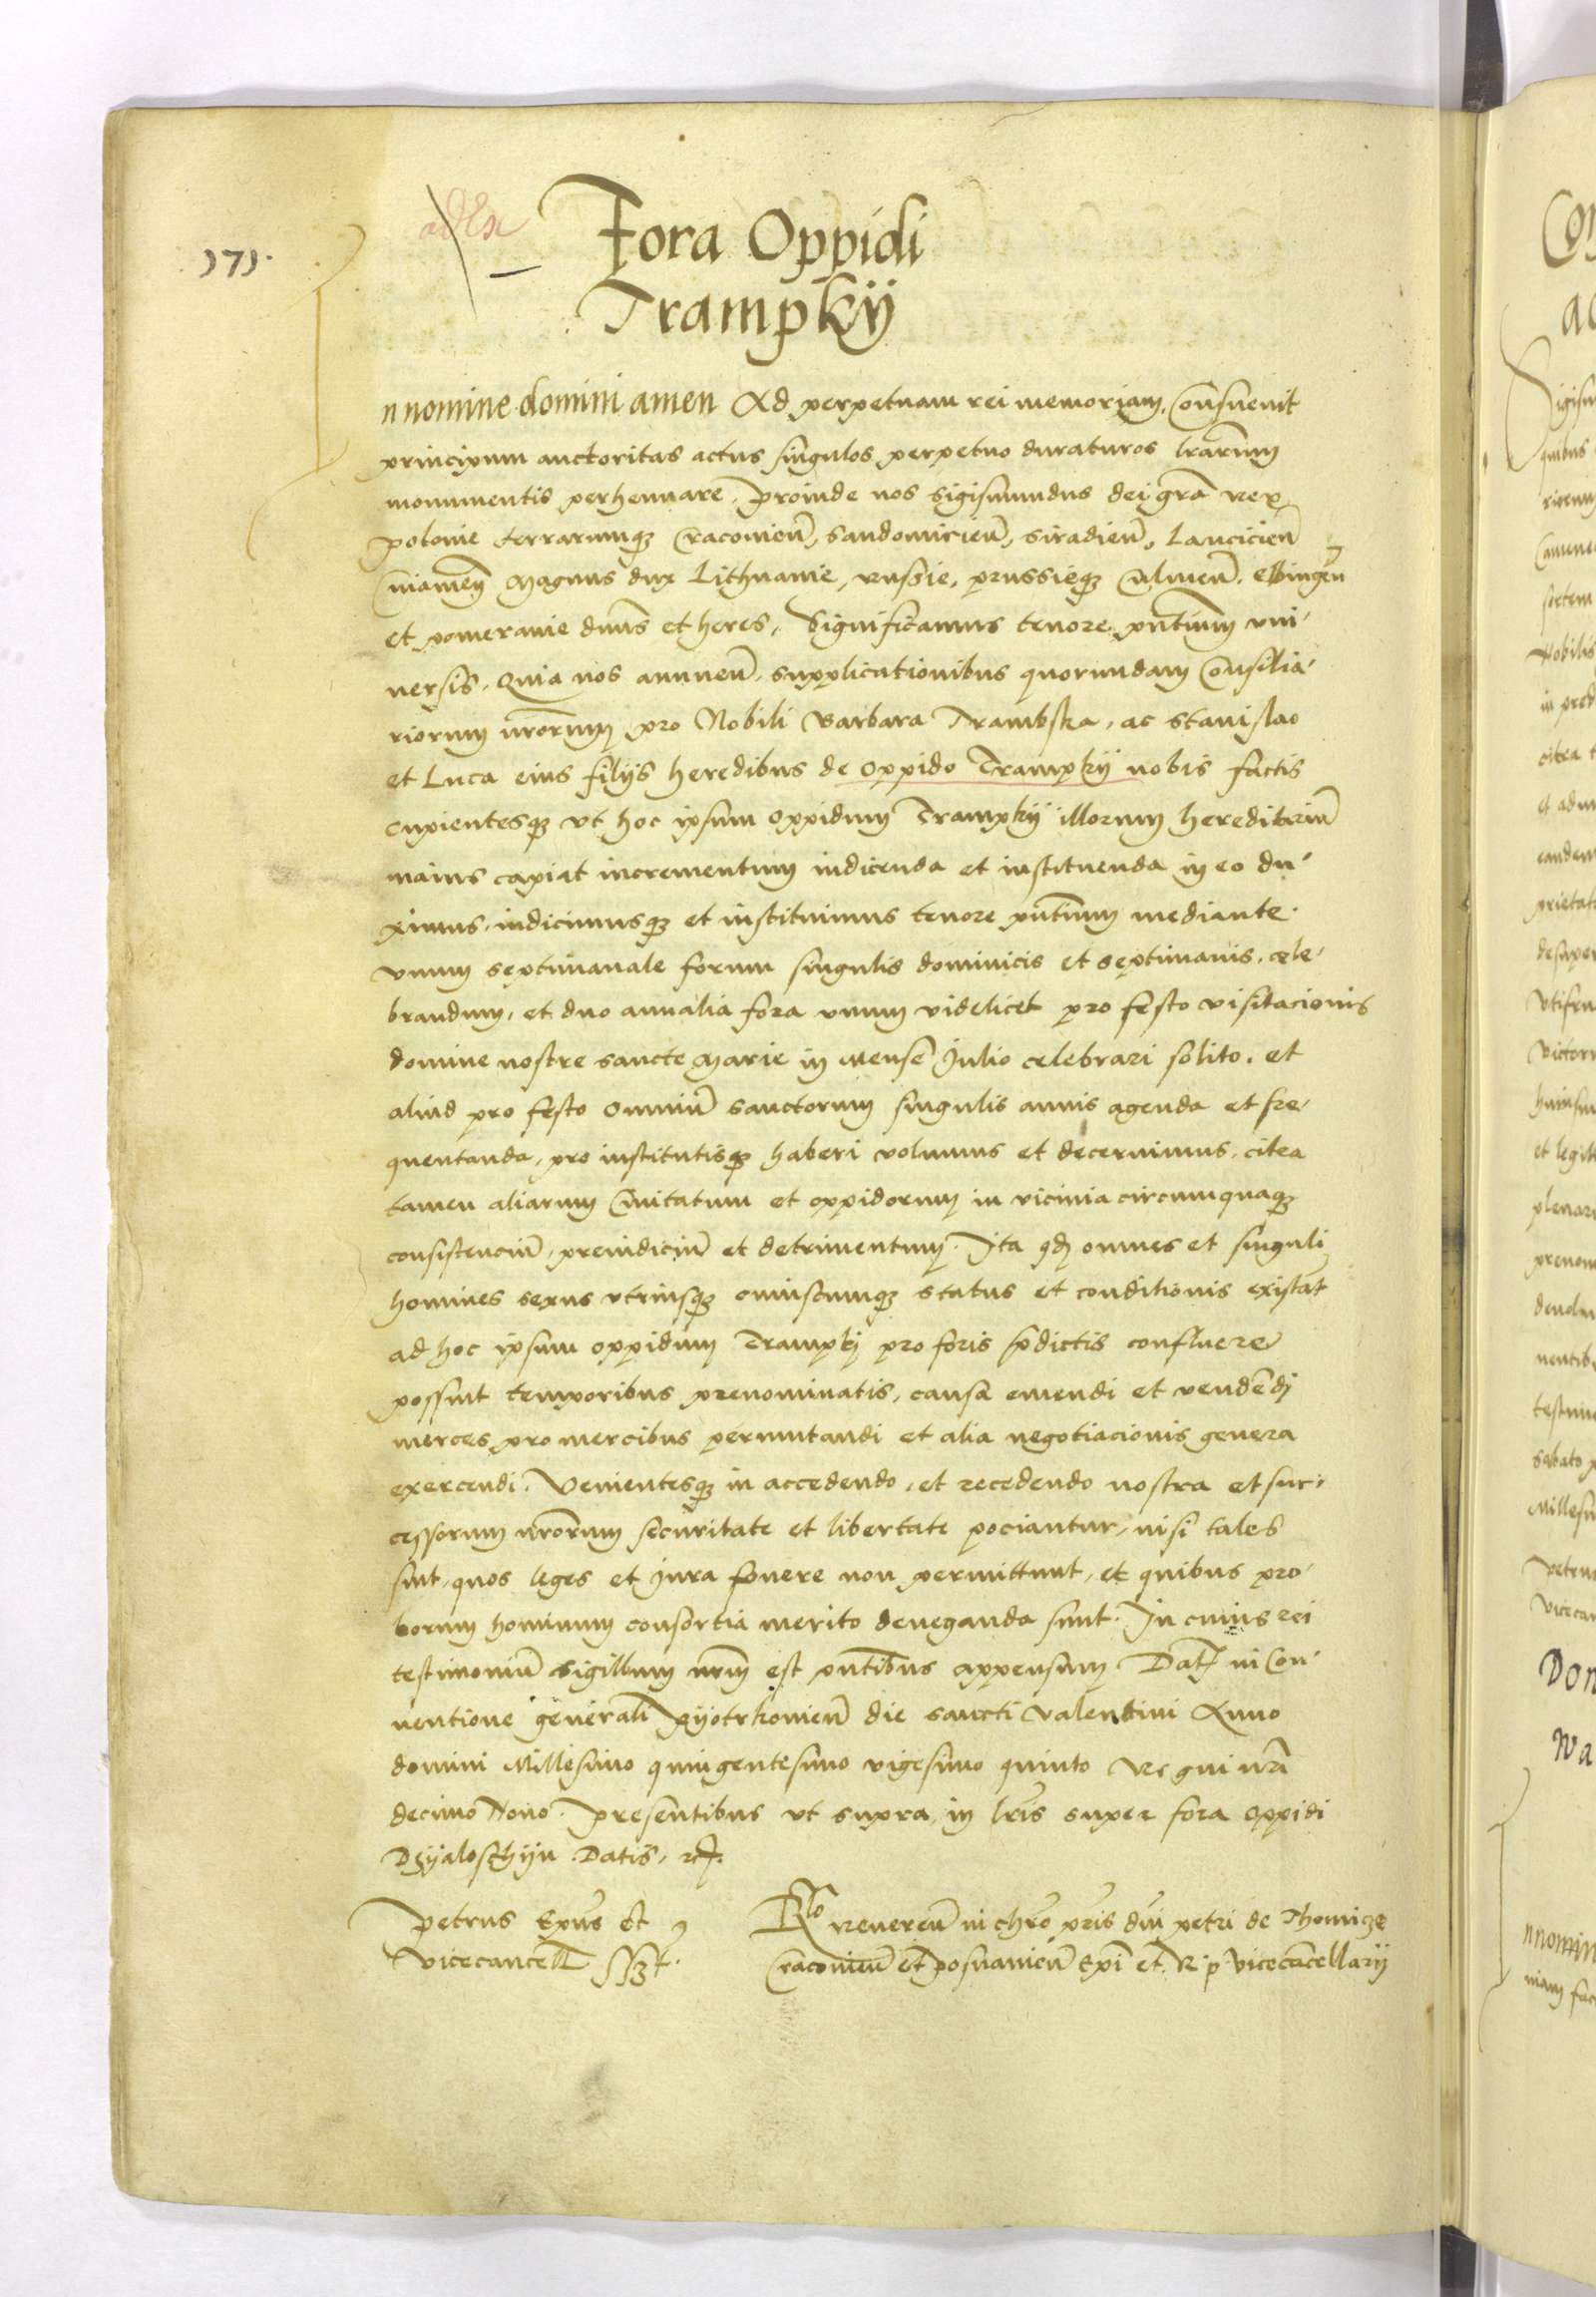 171.
Fora Oppidi
Trampkÿ
n nomine domini amen Ad perpetuam rei memoriam. Consuevit
principum auctoritas actus singulos perpetuo duraturos lrarum
monumentis perhennare. Proinde nos Sigismundus dei gra rex
polonie terrarumq Cracovien, Sandomirien, Siradien, Lancicien
Cuiavien Magnus dux Lithuanie, russie, prussieq Culmen. Elbingen
et pomeranie dnus et heres. Significamus tenore pntium vni-
versis. Quia nos annuen. supplicationibus quorundam Consilia-
riorum nrorum pro Nobili Barbara Trambska, ac Stanislao
et Luca eius filijs heredibus de oppido Trampkij nobis factis
cupientesq vt hoc ipsum oppidum Trampkij illorum hereditarium
maius capiat incrementum indicenda et instituenda in eo du-
ximus. indicimusq et instituimus tenore pntium mediante.
vnum septimanale forum singulis dominicis et septimanis. cele-
brandum. et duo annalia fora vnum videlicet pro festo visitacionis
domine nostre sancte Marie in mense Julio celebrari solito. et
aliud pro festo omniu sanctorum singulis annis agenda et fre-
quentanda, pro institutisq haberi volumus et decernimus. citra
tamen aliarum Civitatum et oppidorum in vicinia circumquaq
consistenciu, preiudiciu et detrimentum. Ita qd omnes et singuli
homines sexus vtriusq cuiuscumq status et conditionis existat
ad hoc ipsum oppidum Trampkj pro foris pdictis confluere
possint temporibus prenominatis, causa emendi et vendedi
merces pro mercibus permutandi et alia negotiacionis genera
exercendi. Venientesq in accedendo, et recedendo nostra et suc-
cessorum nrorum securitate et libertate pociantur, nisi tales
sint, quos leges et Jura fovere non permittunt, et quibus pro-
borum hominum consortia merito deneganda sunt. In cuius rei
testimoniu Sigillum nrm est pntibus appensum. Dat in Con-
ventione generali Pyotrkovien die sancti Valentini Anno
domini Millesimo quingentesimo vigesimo quinto Regni nri
decimo Nono. Presentibus vt supra in lris super fora oppidi
Dzyaloschyn Datis, rc.
Petrus Epus et
vicecancell sszt.
Rlo reveren in chro pris dni petri de Thomicze
Cracovien et Posnanien Epi et R. p. vicecancellarij